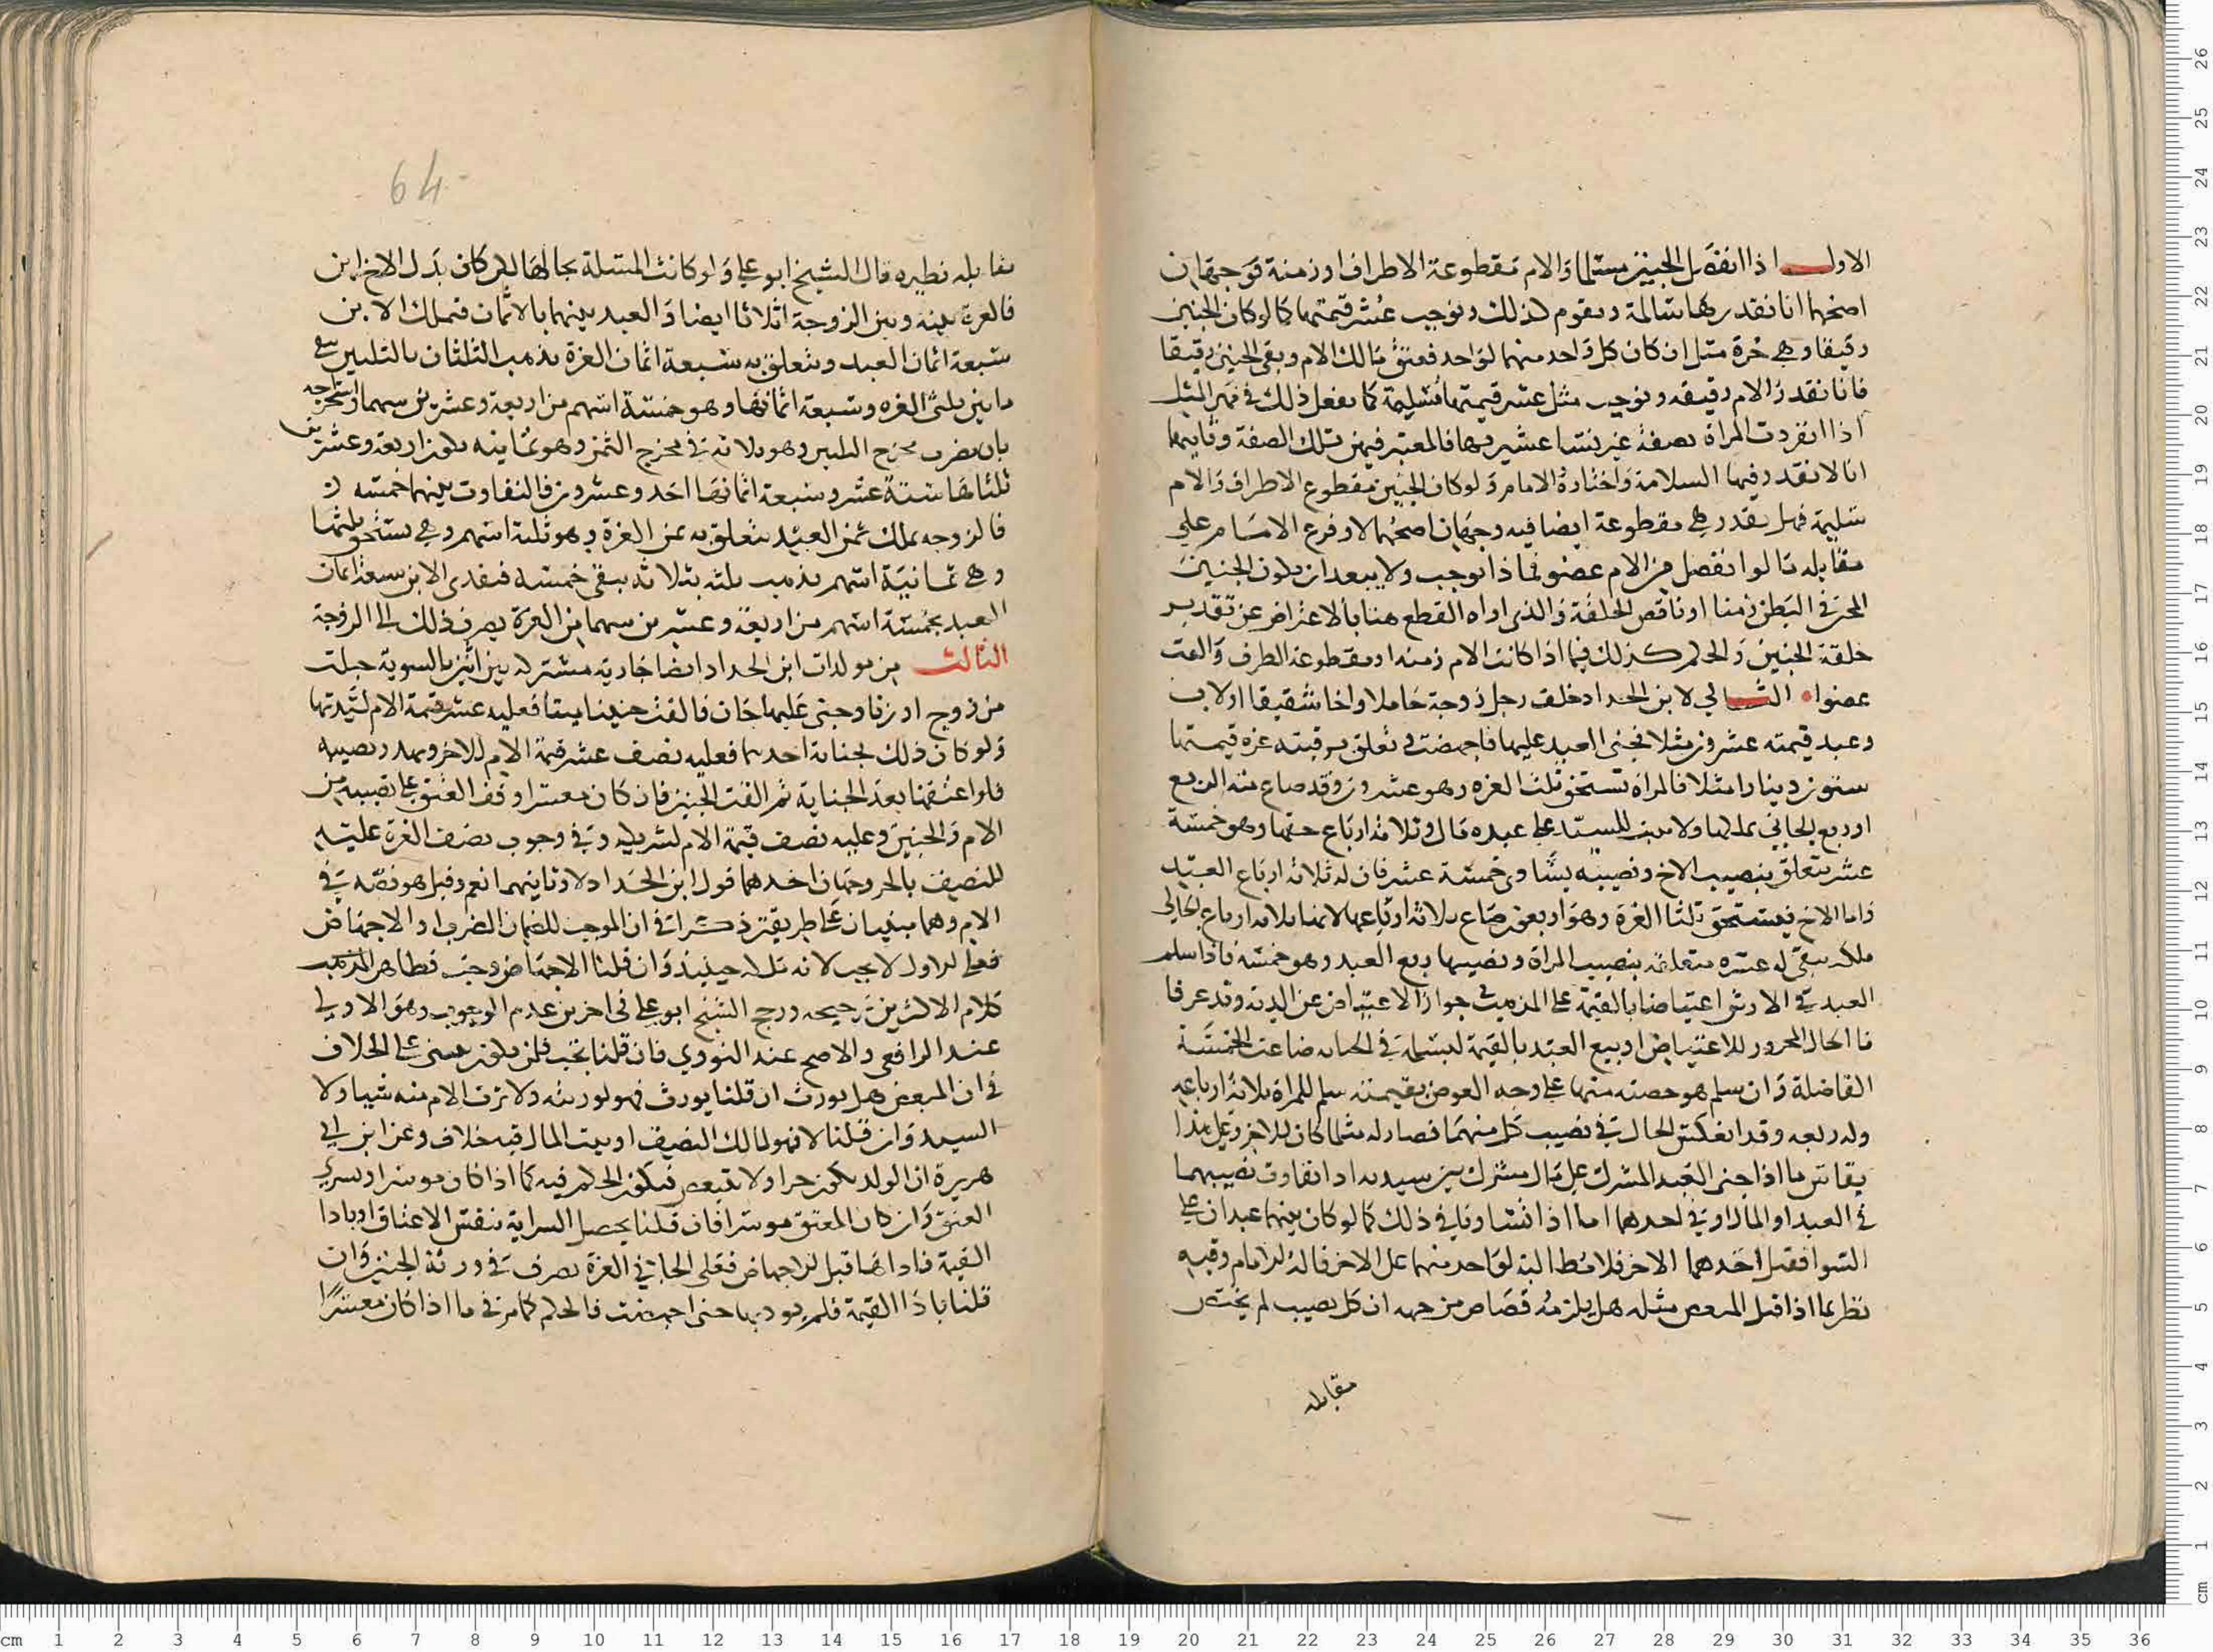 الاول اذا انفصل الجنين سليما والام مقطوعة الاطراف او زمنة فوجهان
اصحهما انا نقدرها سالمة ونقوم كذلك ونوجب عشر قيمتها كما لو كان الجنين
رقيقا وهي حرة مثل ان كان كل واحد منهما لواحد فعتق مالك الام وبقي الجنين رقيقا
فانا نقدر الام رقيقه ونوجب مثل عشر قيمتها سليمة كما نفعل ذلك في مهر المثل
اذا انفردت المراة بصفة عن نسا عشيرتها فالمعتبر فيهن تلك الصفة وثانيهما
انا لا نقدر فيها السلامة واختاره الامام ولو كان الجنين مقطوع الاطراف والام
سليمة فهل نقدر هي مقطوعة ايضا فيه وجهان اصحهما لا وفرع الامام علي
مقابله ما لو انفصل من الام عضو فماذا نوجب ولا يبعد ان يكون الجنين
الحر في البطن زمنا او ناقص الخلقة والذي اراه القطع هنا بالاعراض عن تقدير
خلقة الجنين والحكم كذلك فيما اذا كانت الام زمنه او مقطوعة الطرف والقت
عضوا الثاني لابن الحداد خلف رجل زوجة حاملا واخا شقيقا او لاب
وعبد قيمته عشرون مثلا فجنى العبد عليها فاجهضت وتعلق برقبته غرة قيمتها
ستون دينارا مثلا فالمراة تستحق ثلث الغرة وهو عشرون وقد ضاع منه الربع
اذ ربع الجاني ملكها ولا يثبت للسيد على عبده مال وثلاثة ارباع حقها وهو خمسة
عشر يتعلق بنصيب الاخ ونصيبه يساوي خمسة عشر فان له ثلاثة ارباع العبد
واما الاخ فيستحق ثلثا الغرة وهو اربعون ضاع ثلاثة ارباعها لانها ثلاثة ارباع الجاني
ملكه يبقى له عشره متعلقة بنصيب المراة ونصيبها ربع العبد وهو خمسة فاذا سلم
العبد في الارش اعتياضا بالقيمة على المذهب في جواز الاعتياض عن الدية وقد عرفا
الفاضلة وان سلم هو حصته منها على وجه العوض بقيمته سلم للمراة ثلاثة ارباعه
وله ربعه وقد انعكس الحال في نصيب كل منهما فصار له مثلما كان للاخر وعلى هذا
يقاس ما اذا جنى العبد المشترك على مال مشترك بين سيديه اذا تفاوت نصيبهما
في العبد او المال او في احدهما اما اذا تساويا في ذلك كما لو كان بينهما عبدان على
السوا فقتل احدهما الاخر فلا مطالبة لواحد منهما على الاخر قاله الامام وفيه
نظر لما اذا قتل المبعض مثله هل يلزمه قصاص من جهة ان كل نصيب لم يختص
مقابله
64
مقابله نظيره قال الشيخ ابو علي ولو كانت المسلة بحالها لكن كان بدل الاخ ابن
فالغرة بينه وبين الزوجة اثلاثا ايضا والعبد بينهما بالاثمان فتملك الابن
سبعة اثمان العبد ويتعلق به سبعة اثمان الغرة يذهب الثلثان بالثلثين يبقى
ما بين ثلثي الغره وسبعة اثمانها وهو خمسة اسهم من اربعة وعشرين سهما واستخرجه
بان يضرب مخرج الثلثين وهو ثلاثة في مخرج الثمن وهو ثمانيه يكون اربعة وعشرين
ثلثاها ستة عشر وسبعة اثمانها احد وعشرون فالتفاوت بينهما خمسة
فالزوجه تملك ثمن العبد يتعلق به ثمن الغرة وهو ثلثة اسهم وهي تستحق ثلثها
وهي ثمانية اسهم يذهب ثلثه بثلاثه يبقى خمسه فيفدى الابن سبعة اثمان
العبد بخمسة اسهم من اربعة وعشرين سهما من الغرة يصرف ذلك الى الزوجة
الثالث من مولدات ابن الحداد ايضا جارية مشتركة بين اثنين بالسوية حبلت
من زوج او زنا وجنى عليها جان فالقت جنينا ميتا فعليه عشر قيمة الام لسيدتها
ولو كان ذلك لجناية احدهما فعليه نصف عشر قيمة الام للاخر ويهدر نصيبه
فلو اعتقها بعد الجناية ثم القت الجنين فان كان معسرا وقف العتق على نصيبه من
الام والجنين وعليه نصف قيمة الام لشريكه وفي وجوب نصف الغرة عليه
للنصف بالحر وجهان احدهما قول ابن الحداد لا وثانيهما نعم وقيل هو نصه في
الام وهما مبنيان على طريقين ذكرا في ان الموجب للضمان الضرب او الاجهاض
فعلى الاول لا يجب لانه ملكه حينئذ وان قلنا الاجهاض وجب فظاهر المذهب
كلام الاكثرين ترجيحه ورجح الشيخ ابو علي في اخرين عدم الوجوب وهو الاولى
عند الرافعي والاصح عند النووي فان قلنا تجب فلمن يكون مبني على الخلاف
في ان المبعض هل يورث ان قلنا يورث فهو لورثته ولا ترث الام منه شيا ولا
السيد وان قلنا لا فهو لمالك النصف او بيت المال فيه خلاف وعن ابن ابي
هريرة ان الولد يكون حرا ولا تتبعض فيكون الحكم فيه كما اذا كان موسرا ويسري
العتق وان كان المعتق موسرا فان قلنا يحصل السراية بنفس الاعتاق او بادا
القيمة فاداها قبل الاجهاض فعلى الجاني الغرة تصرف في ورثة الجنين وان
قلنا باداا القيمة فلم يودها حتى اجهضت فالحكم كما مر في ما اذا كان معسرا